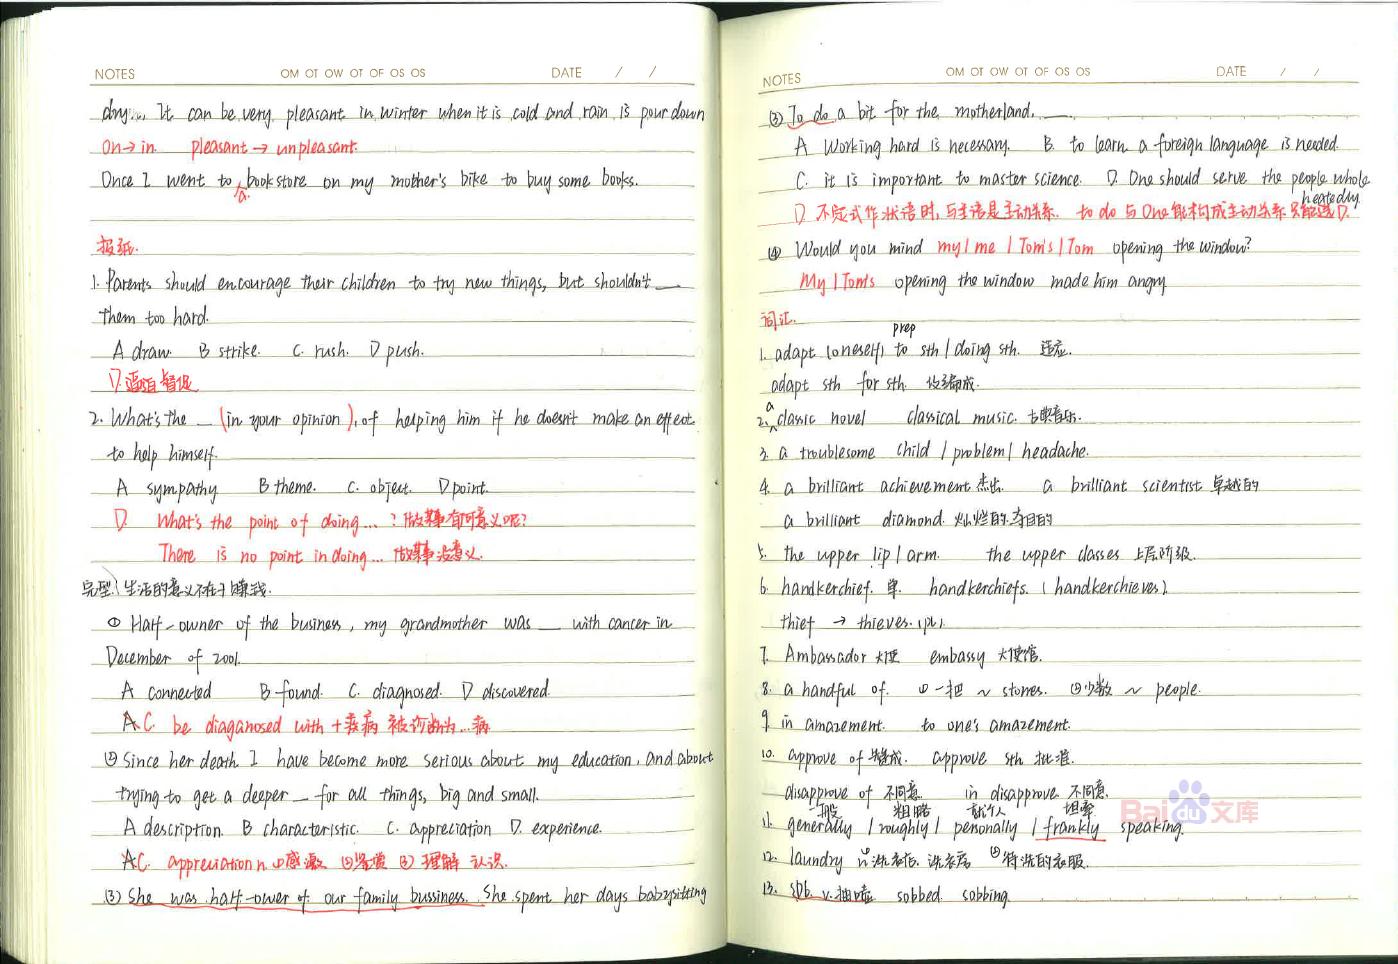 NOTES OM OT OW OT OF OS OS DATE / /
dry... It can be very pleasant in winter when it is cold and rain is pour down
on→in. pleasant → unpleasant.
Once I went to bookstore on my mother's bike to buy some books.
a.
报纸.
1. Parents should encourage their children to try new things, but shouldn't __
them too hard.
A draw. B strike. C. rush. D push.
D. 逼迫 督促
2. What's the __ (in your opinion), of helping him if he doesn't make an effect
to help himself.
A sympathy B theme. C. object. D point.
D. What's the point of doing... ? 做某事有何意义呢?
There is no point in doing... 做某事没意义.
完型. 生活的意义不在于赚钱.
① Half-owner of the business, my grandmother was __ with cancer in
December of 2001.
A connected B found. C. diagnosed. D discovered.
A C. be diaganosed with +疾病 被诊断为...病
② Since her death I have become more serious about my education, and about
trying to get a deeper __ for all things, big and small.
A description. B characteristic. C. appreciation D. experience.
A C. appreciation n. ①感激 ②鉴赏 ③理解 认识.
(3) She was half-ower of our family bussiness. She spent her days babysitting
NOTES OM OT OW OT OF OS OS DATE / /
③ To do a bit for the motherland, __.
A Working hard is necessary. B. to learn a foreign language is needed.
C. it is important to master science. D. One should serve the people whole
heatedly.
D 不定式作状语时,与主语是主动关系. to do 与 One 能构成主动关系 只能选D.
④ Would you mind my / me / Tom's / Tom opening the window?
My / Tom's opening the window made him angry
词汇.
prep
1. adapt (oneself) to sth / doing sth. 适应.
adapt sth for sth. 改编成.
a
2. classic novel classical music. 古典音乐.
3. a troublesome child / problem / headache.
4. a brilliant achievement 杰出. a brilliant scientist 卓越的
a brilliant diamond. 灿烂的.夺目的
5. the upper lip / arm. the upper classes 上层阶级.
6. handkerchief. 单. handkerchiefs. (handkerchieves).
thief → thieves. (pl).
7. Ambassador 大使 embassy 大使馆.
8. a handful of. ①一把 ~ stones. ②少数 ~ people.
9. in amazement. to one's amazement.
10. approve of 赞成. approve sth 批准.
disapprove of 不同意 in disapprove 不同意.
一般 粗略 就个人 坦率
11. generally / roughly / personally / frankly speaking.
12. laundry n ①洗衣店. 洗衣房 ②待洗的衣服.
13. sob. v. 抽噎 sobbed. sobbing.
Baidu文库